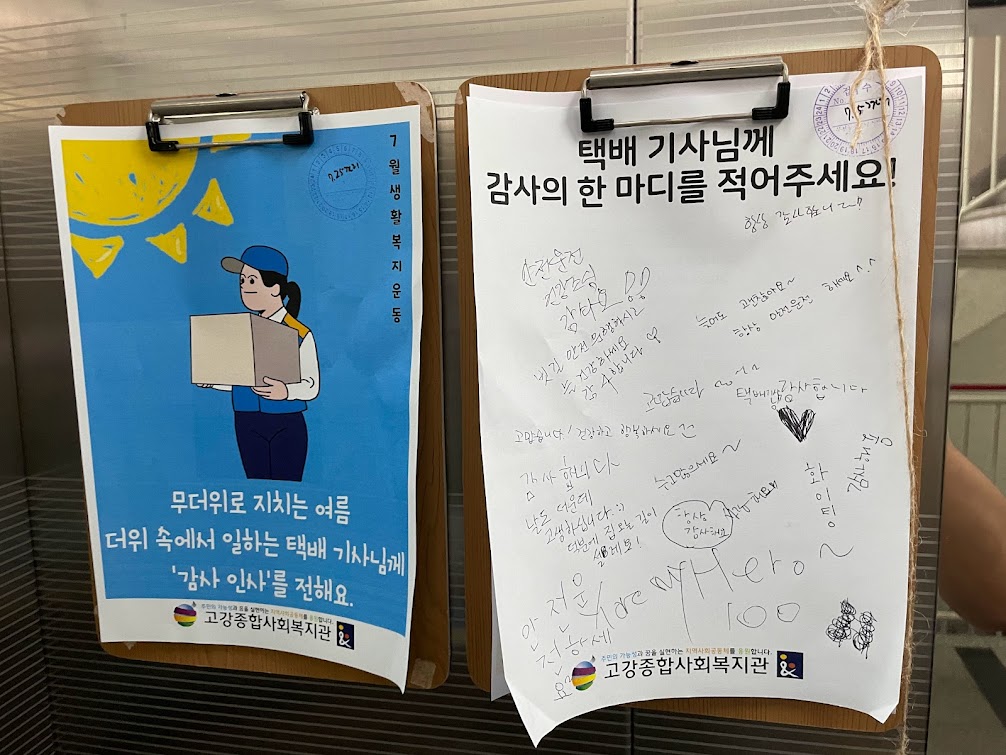 7월생활복지운동
무더위로 지치는 여름
더위 속에서 일하는 택배 기사님께
'감사 인사'를 전해요.
주민의 가능성과 꿈을 실현하는 지역사회공동체를 응원합니다.
고강종합사회복지관
택배 기사님께
감사의 한 마디를 적어주세요!
항상
안전운전
건강조심
감다요
늦어도 괜찮아요~
항상 안전운전 해요^.^
안전 운행하시길
건강하세요 ♡
감사합니다
고맙습니다
택배기사님 감사합니다
고맙습니다! 건강하고 행복하세요
감사합니다
날도 더운데
고생하십니다:)
덕분에 집 오는 길이
설레요!
수고많으세요~
항상
감사해요
화이팅~
안전운전하세요
My Hero
100
주민의 가능성과 꿈을 실현하는 지역사회공동체를 응원합니다.
고강종합사회복지관